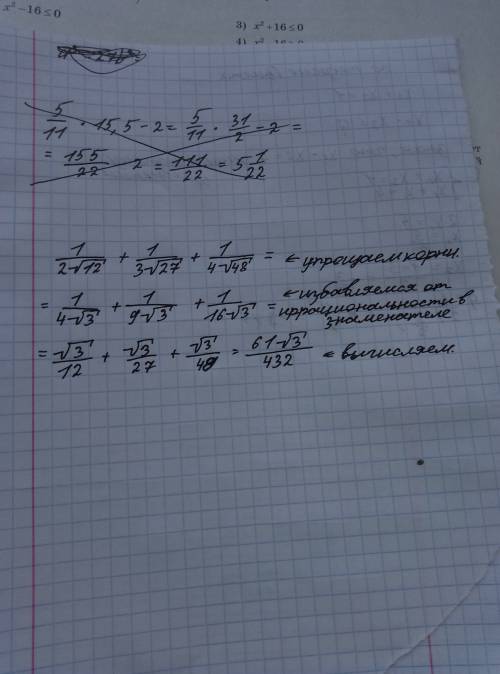 x² − 16 ≤ 0
3) x² + 16 ≤ 0
5/11 · 15,5 − 2 = 5/11 · 31/2 − 2 =
= 155/22 − 2 = 111/22 = 5 1/22
1/(2√12) + 1/(3√27) + 1/(4√48) = ← упрощаем корни.
= 1/(4√3) + 1/(9√3) + 1/(16√3) = ← избавляемся от иррациональности в знаменателе
= √3/12 + √3/27 + √3/48 = 61√3/432 ← вычисляем.